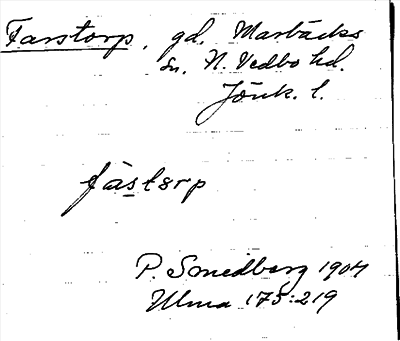 Farstorp, gd. Marbäcks
sn. N. Vedbo hd.
Jönk. l.
fàstorp
P. Smedberg 1904
Ulma 175:219